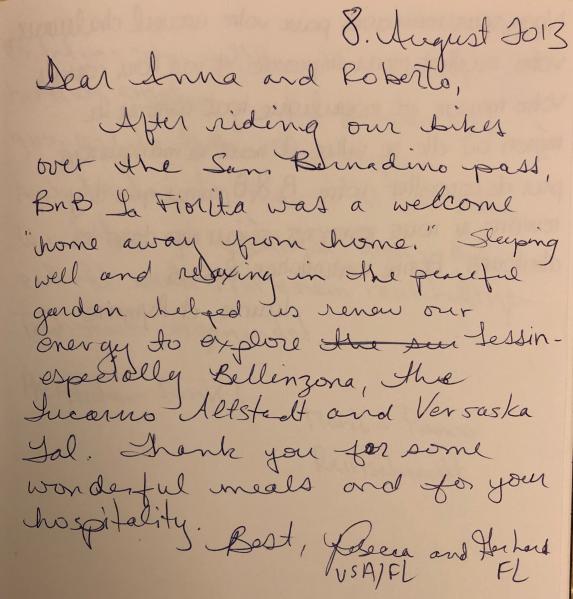 8. August 2013
Dear Anna and Roberto,
After riding our bikes
over the San Bernadino pass,
BnB La Fiorita was a welcome
"home away from home." Sleeping
well and relaxing in the peaceful
garden helped us renew our
energy to explore the su Tessin-
especially Bellinzona, the
Lucarno Altstadt and Versaska
Tal. Thank you for some
wonderful meals and for your
hospitality.
Best, Rebecca and Gerhard
USA/FL FL